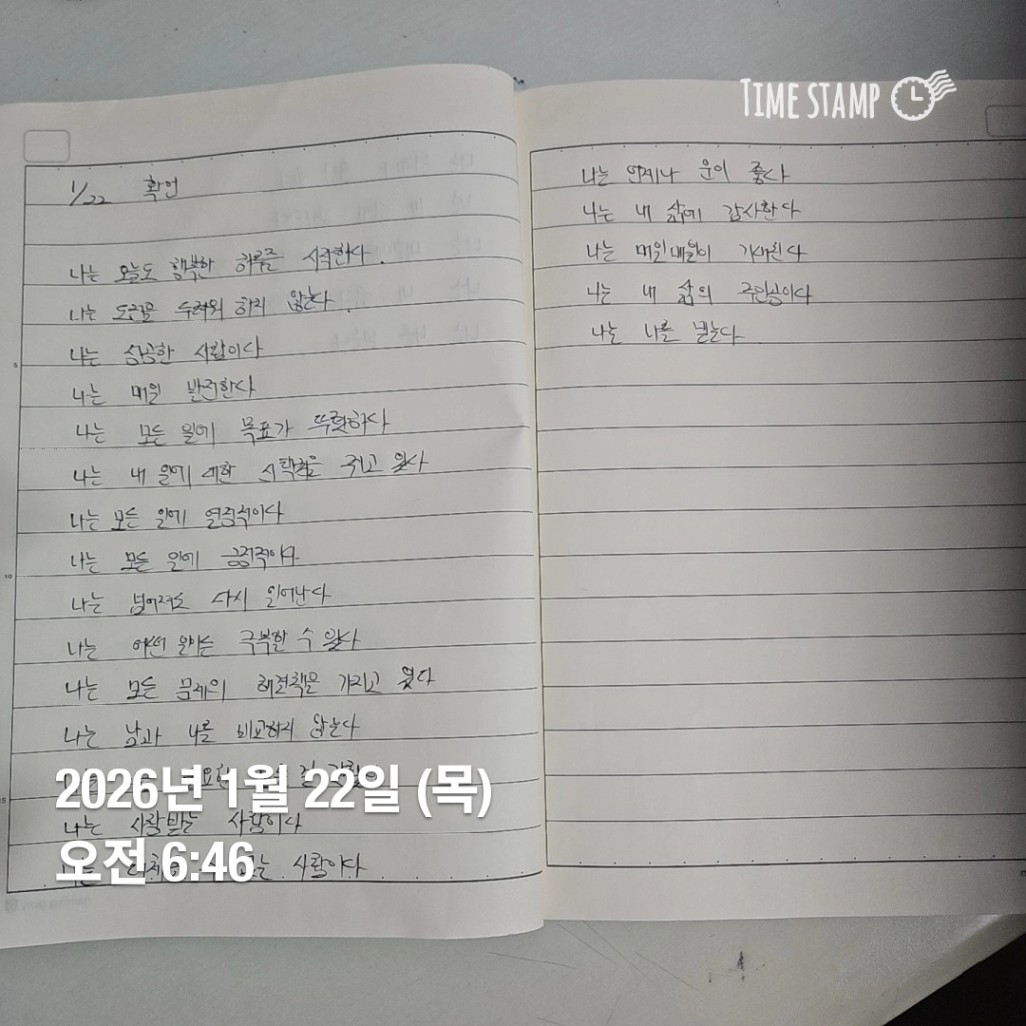 TIME STAMP
1/22 확언
나는 오늘도 행복한 하루를 시작한다.
나는 도전을 두려워 하지 않는다.
나는 성공한 사람이다
나는 매일 발전한다
나는 모든 일에 목표가 뚜렷하다
나는 내 일에 대한 선택권을 쥐고 있다
나는 모든 일에 열정적이다
나는 모든 일에 긍정적이다
나는 넘어져도 다시 일어난다
나는 어떤 일이든 극복할 수 있다
나는 모든 문제의 해결책을 가지고 있다
나는 남과 나를 비교하지 않는다
나는 사랑받는 사람이다
사람이다
2026년 1월 22일 (목)
오전 6:46
나는 언제나 운이 좋다
나는 내 삶에 감사한다
나는 매일매일이 기대된다
나는 내 삶의 주인공이다
나는 나를 믿는다